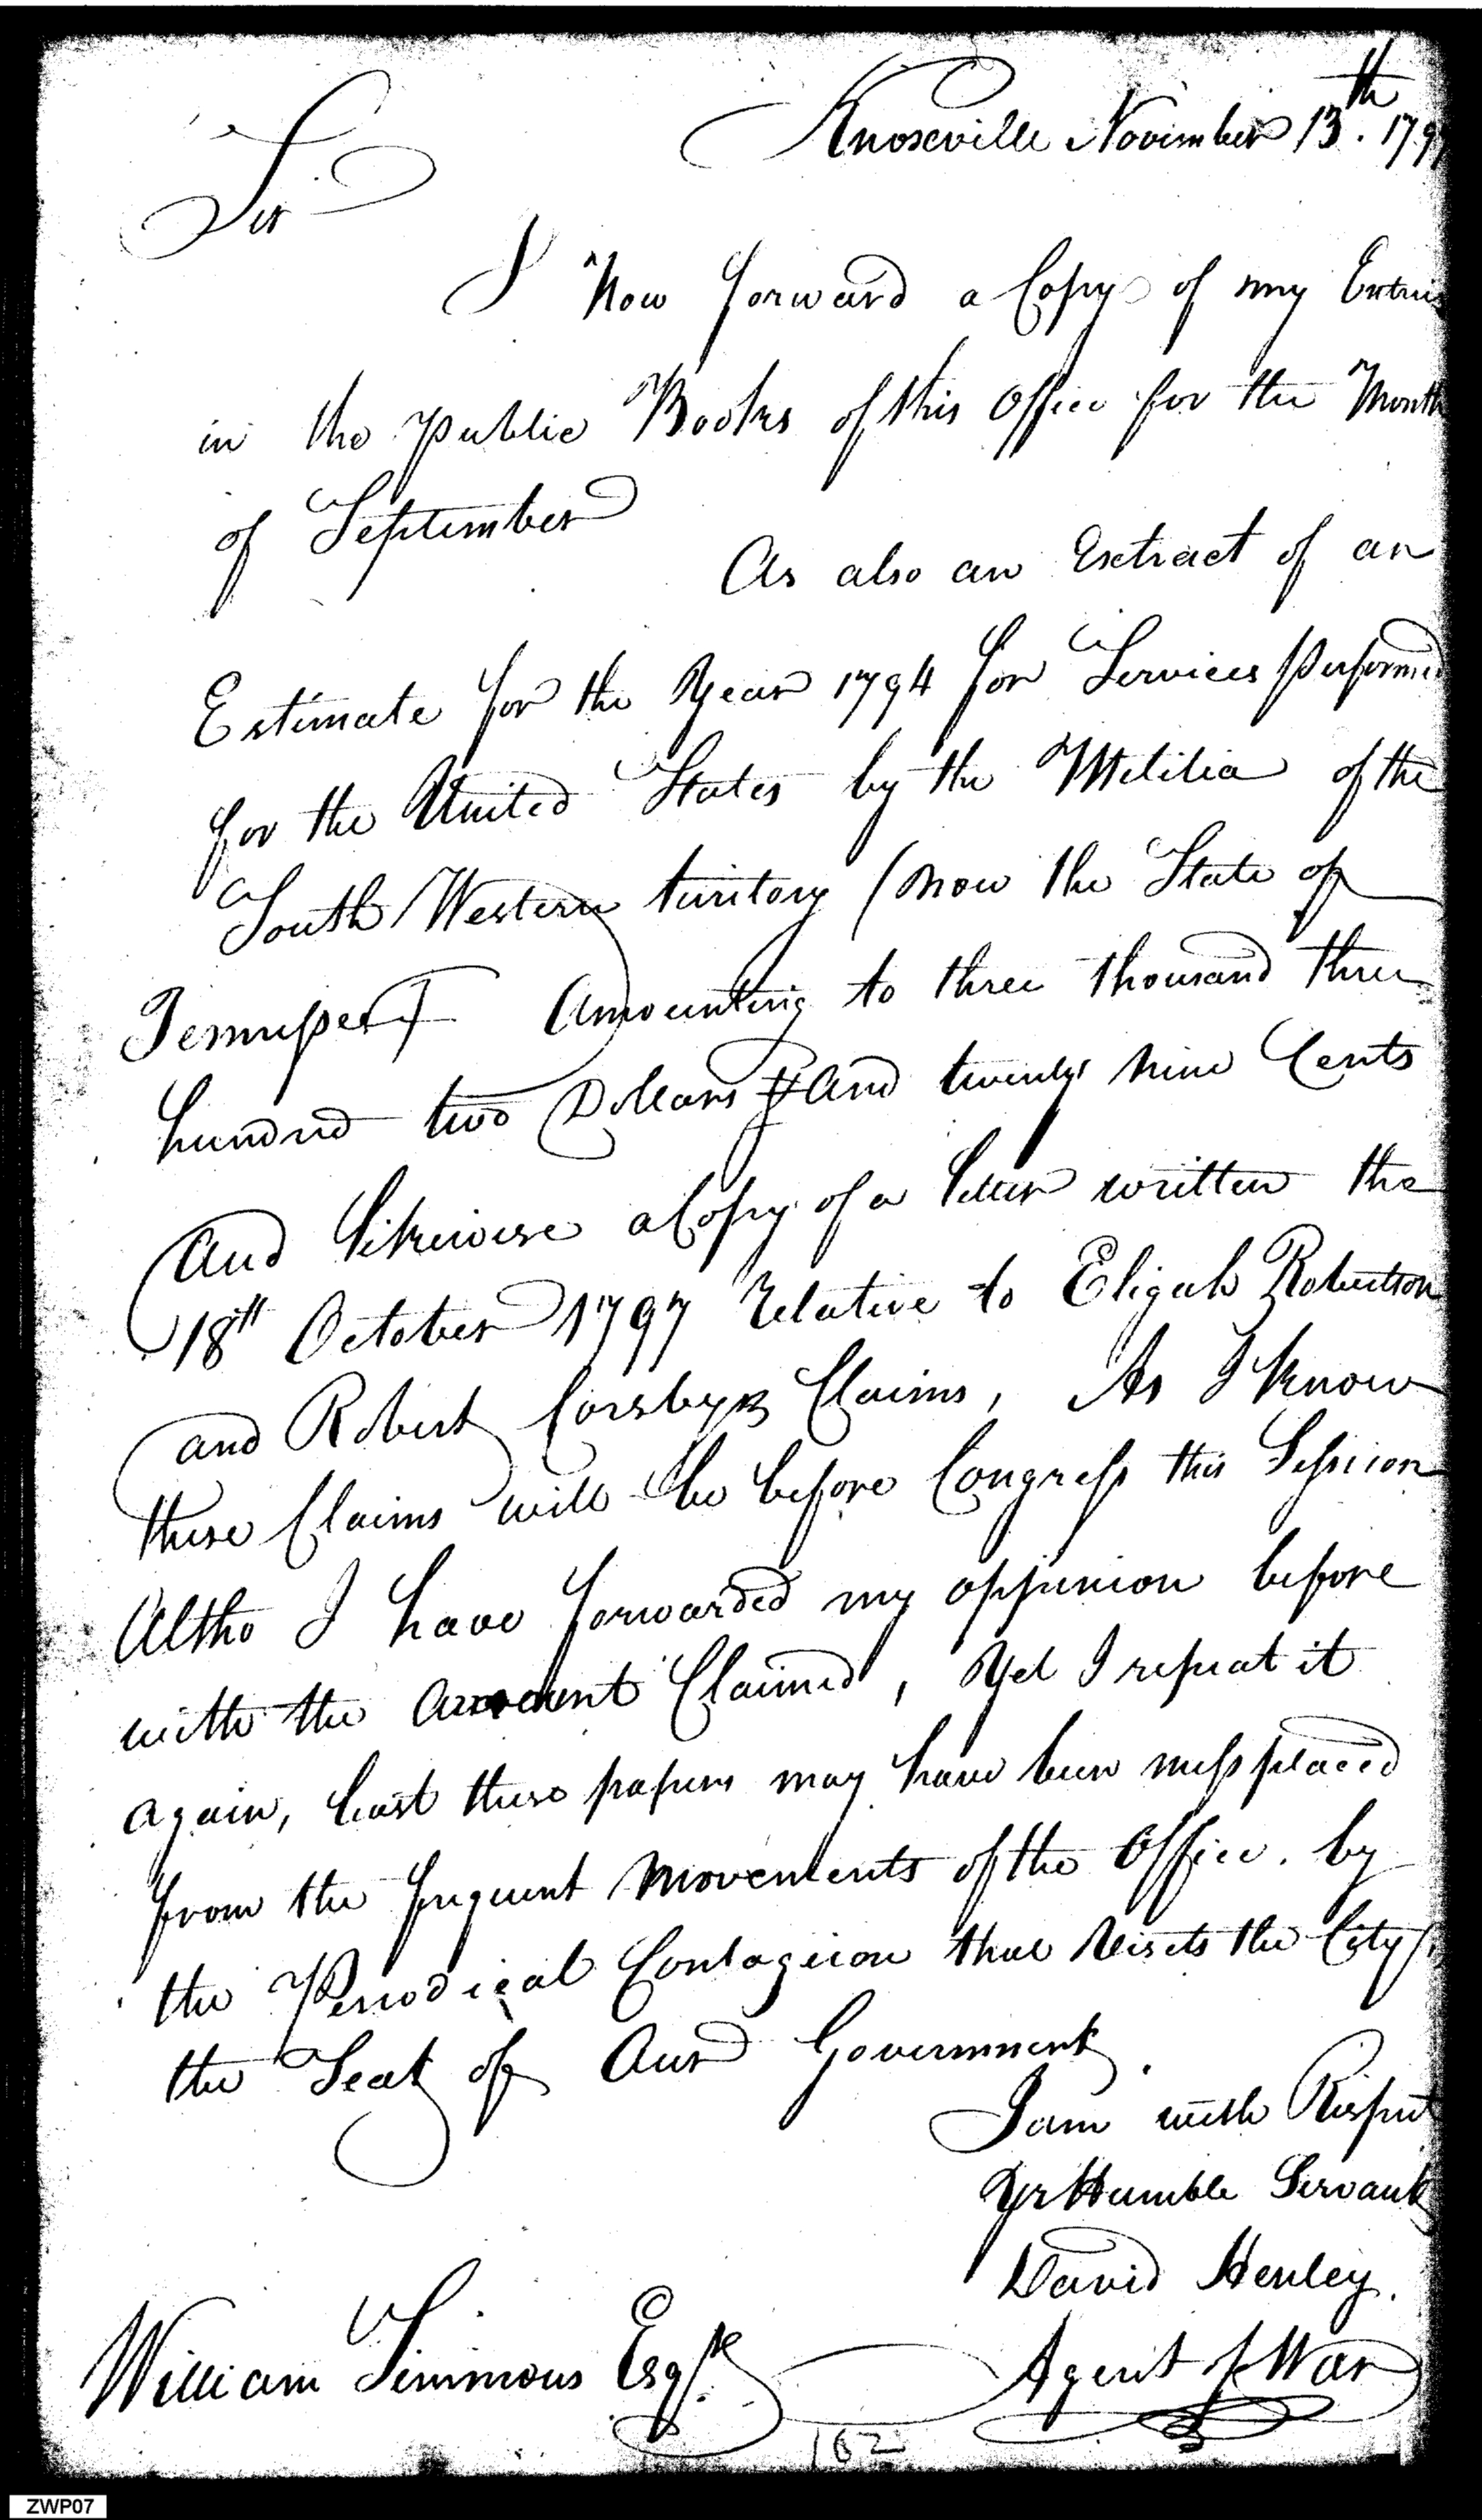 Knoxville November 13th. 1797
Sir
I Now forward a Copy of my Entries
in the public Books of this Office for the Month
of September
As also an Extract of an
Estimate for the Year 1794 for Services performed
for the United States by the Militia of the
South Western territory (now the State of
Tennessee) Amounting to three thousand three
hundred two Dollars And twenty nine Cents
And likewise a Copy of a letter written the
18th October 1797 Relative to Eligah Robertson
and Robert Corsbys Claims, As I know
these Claims will be before Congress this Session
Altho I have forwarded my oppinion before
with the amount Claimed, Yet I repeat it
again, least these papers may have been missplaced
from the frequent movements of the Office. by
the Periodical Contagion that Visits the City
the Seat of Our Government.
I am with Respect
Yr Humble Servant
David Henley.
William Simmons Esqr. Agent f War
162
ZWP07